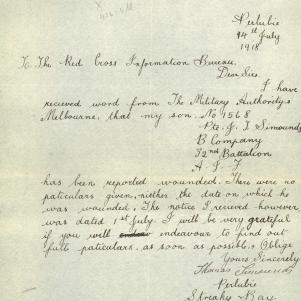 Perlubie
14th July
1918
To The Red Cross Information Bureau,
Dear Sir.
I have
recieved word from The Military Authority's
Melbourne, that my son. No 1568
Pte. J. T. Simounds
B Company
32nd Battalion
A. I. F
has been reported wounded. There were no
paticulars given, neither the date on which he
was wounded. The notice I recieved however
was dated 1st July. I will be very grateful
if you will endeavour to find out
full paticulars, as soon as possible. Oblige
Yours Sincerely
Thomas Simounds
Perlubie
Streaky Bay